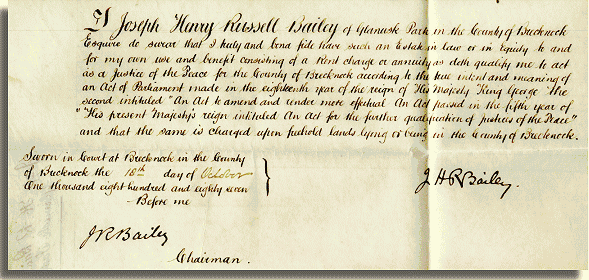 I Joseph Henry Russell Bailey of Glanusk Park in the County of Brecknock
Esquire do swear that I truly and bona fide have such an Estate in law or in Equity to and
for my own use and benefit consisting of a Rent charge or annuity as doth qualify me to act
as a Justice of the Peace for the County of Brecknock according to the true intent and meaning of
an Act of Parliament made in the eighteenth year of the reign of His Majesty King George the
second intituled "An Act to amend and render more effectual An Act passed in the fifth year of
"His present Majesty's reign intituled An Act for the further qualification of justices of the Peace"
and that the same is charged upon freehold lands lying or being in the County of Brecknock.
Sworn in Court at Brecknock in the County
of Brecknock the 18th day of October
One thousand eight hundred and eighty seven
- Before me
J H R Bailey.
J R Bailey
Chairman.